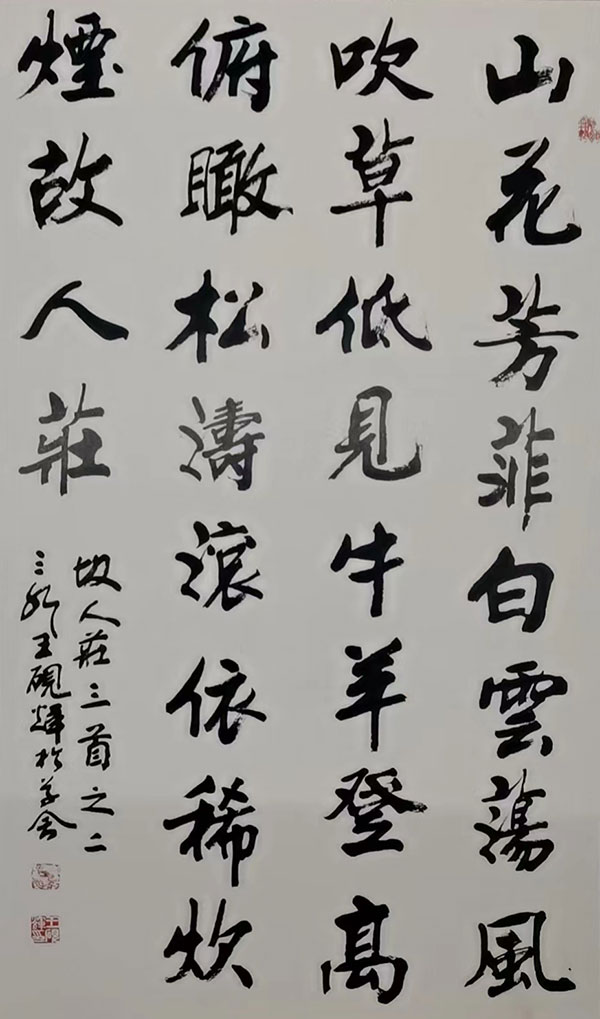 山花芳菲白雲蕩風
吹草低見牛羊登高
俯瞰松濤滾依稀炊
煙故人莊
故人莊三首之二
王硯輝於草舍